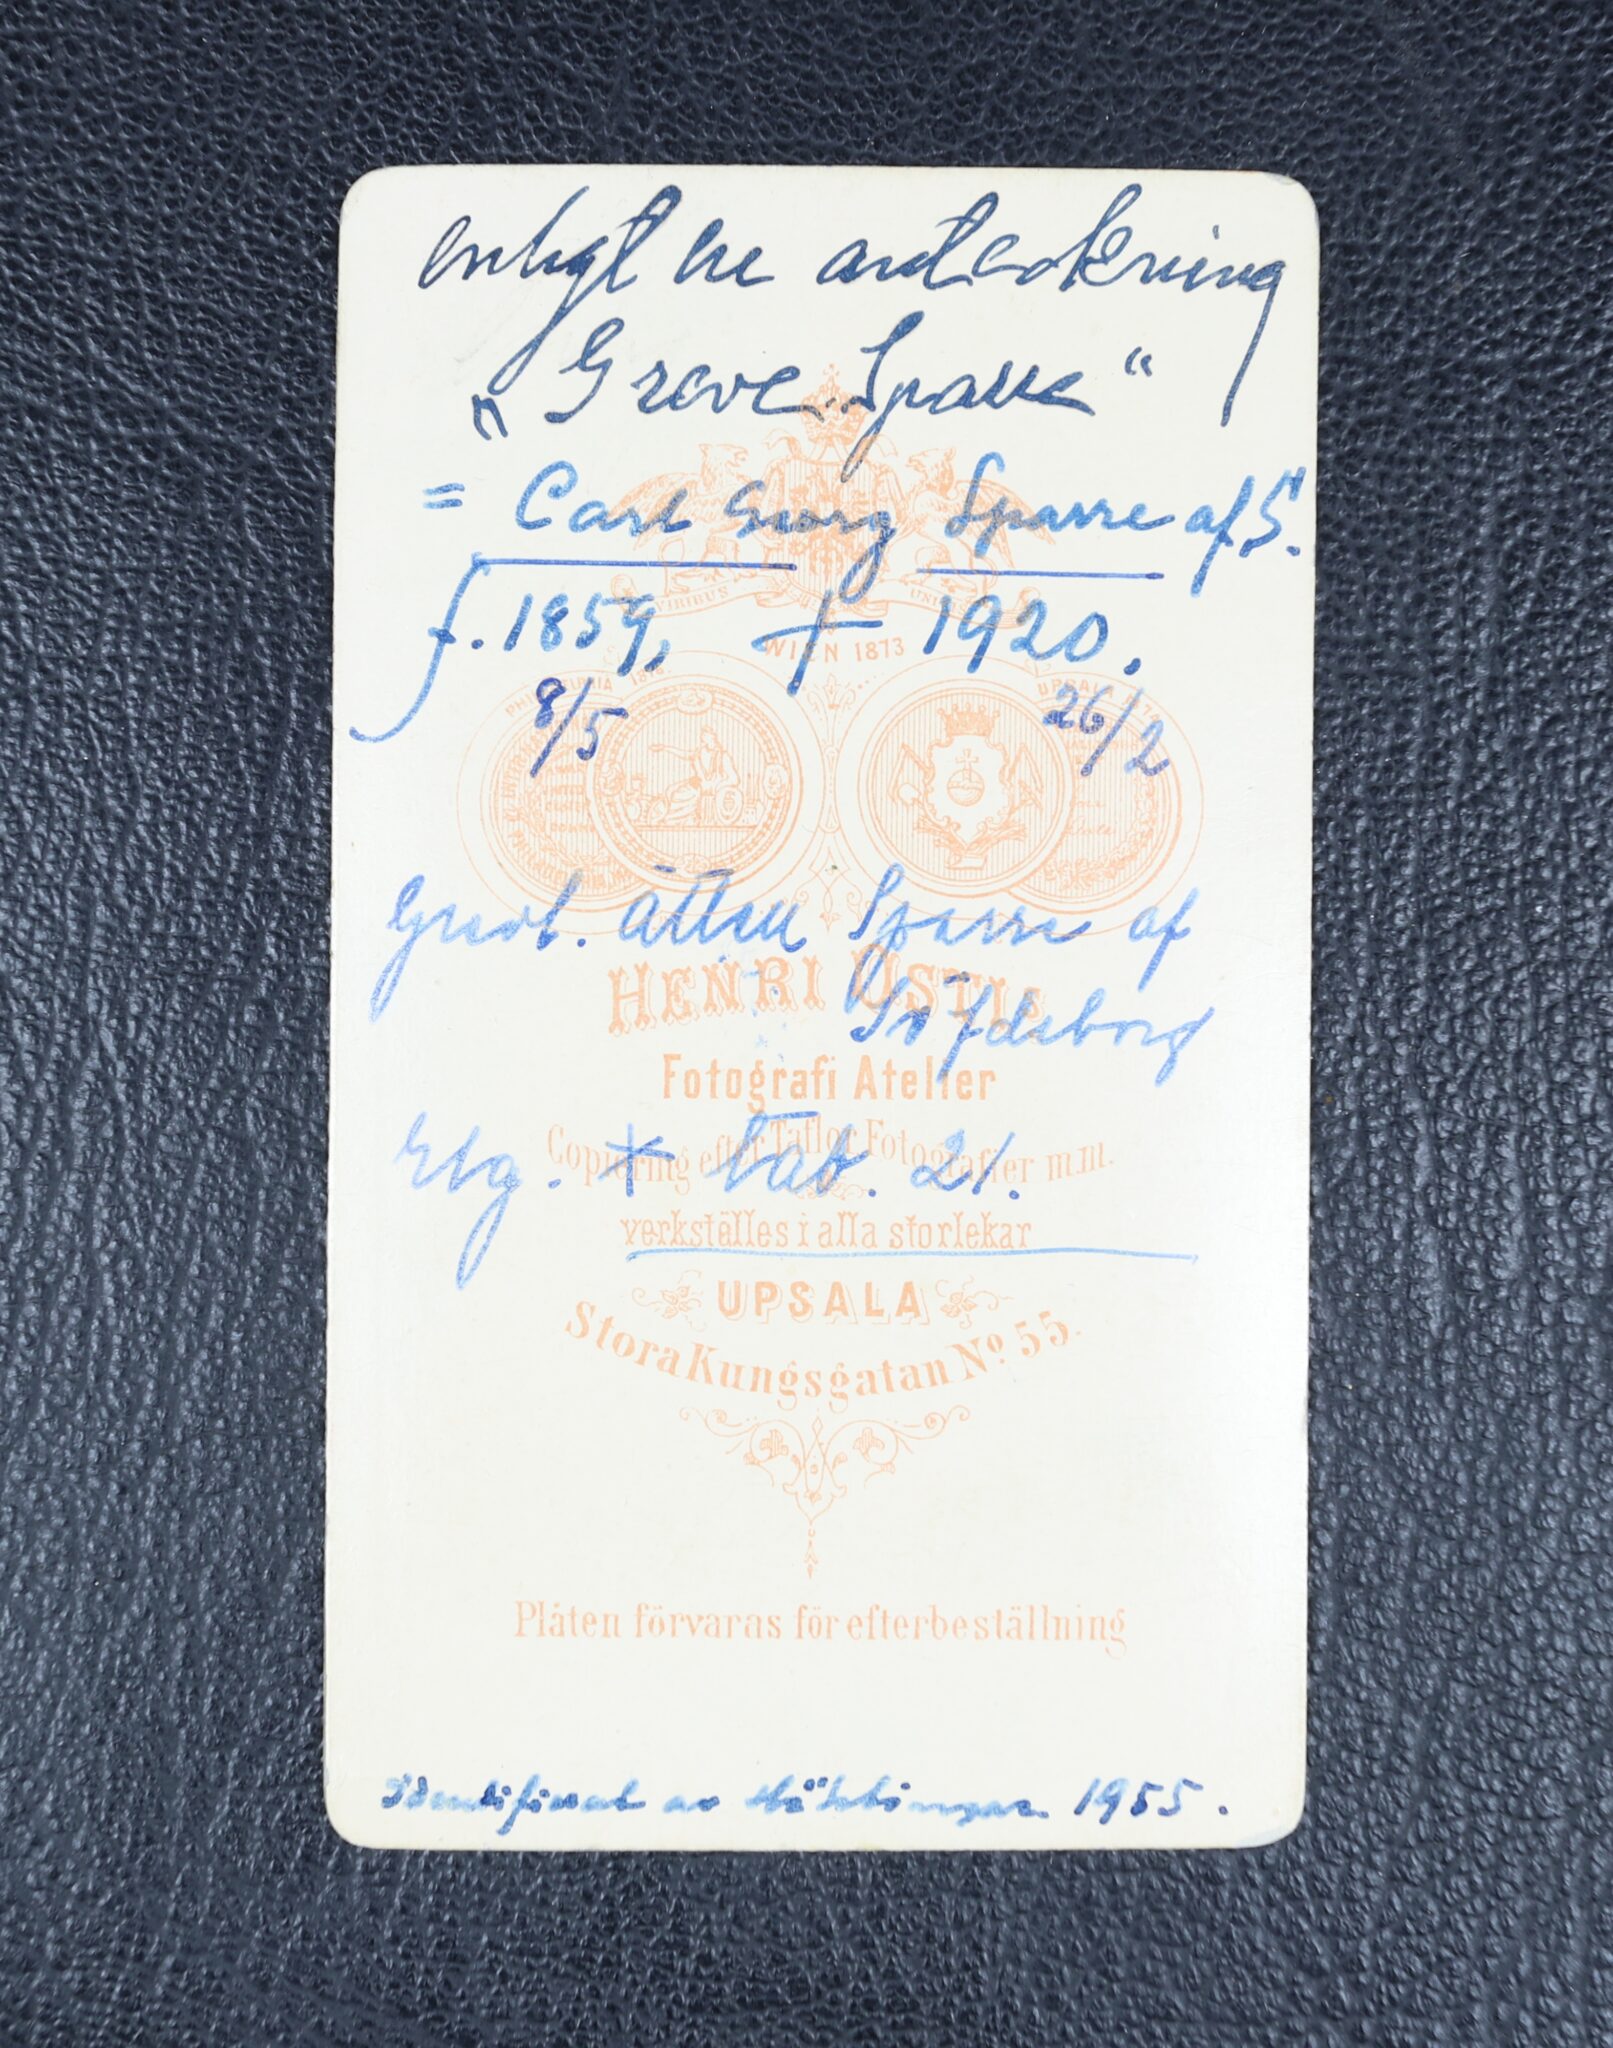 enligt en anteckning
„Greve Sparre“
= Carl Georg Sparre af S.
f. 1859, † 1920.
8/5 26/2
VIRIBUS UNITIS
WIEN 1873
PHILADELPHIA 1876
UPSALA
Grevl. ätten Sparre af
Söfdeborg
HENRI OSTI
Fotografi Atelier
Elg. † tab. 21.
Copiering efter Taflor Fotografier m.m.
verkställes i alla storlekar
UPSALA
Stora Kungsgatan No. 55.
Plåten förvaras för efterbeställning
Identifierat av 1955.